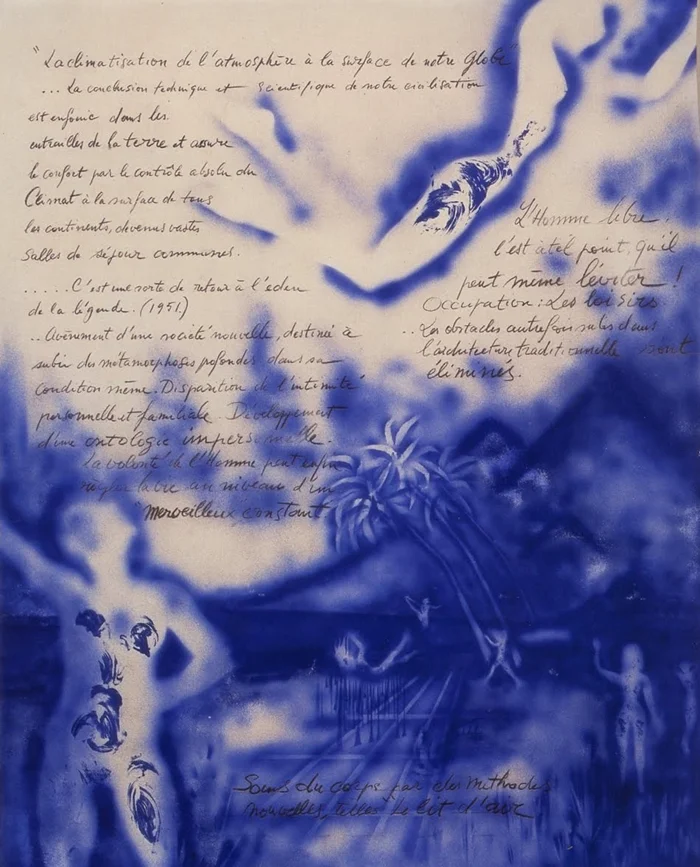 "La climatisation de l'atmosphère à la surface de notre Globe"
... La conclusion technique et scientifique de notre civilisation
est enfouie dans les
entrailles de la terre et assure
le confort par le contrôle absolu du
Climat à la surface de tous
les continents, devenus vastes
salles de séjour communes.
..... C'est une sorte de retour à l'éden
de la légende. (1951.)
.. Avènement d'une société nouvelle, destinée à
subir des métamorphoses profondes dans sa
condition même. Disparition de l'intimité
personnelle et familiale. Développement
d'une ontologie impersonnelle.
La volonté de l'Homme peut enfin
régler la vie au niveau d'un
"Merveilleux constant"
L'Homme libre
l'est à tel point, qu'il
peut même léviter !
Occupation : Les loisirs
.. Les obstacles autrefois subis dans
l'architecture traditionnelle sont
éliminés.
Soins du corps par des méthodes
nouvelles, telles le lit d'air